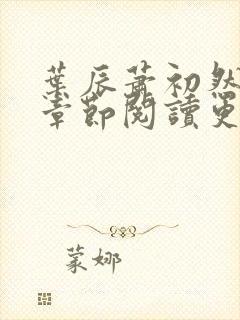 葉辰蕭初然
章節閱讀更
蒙娜